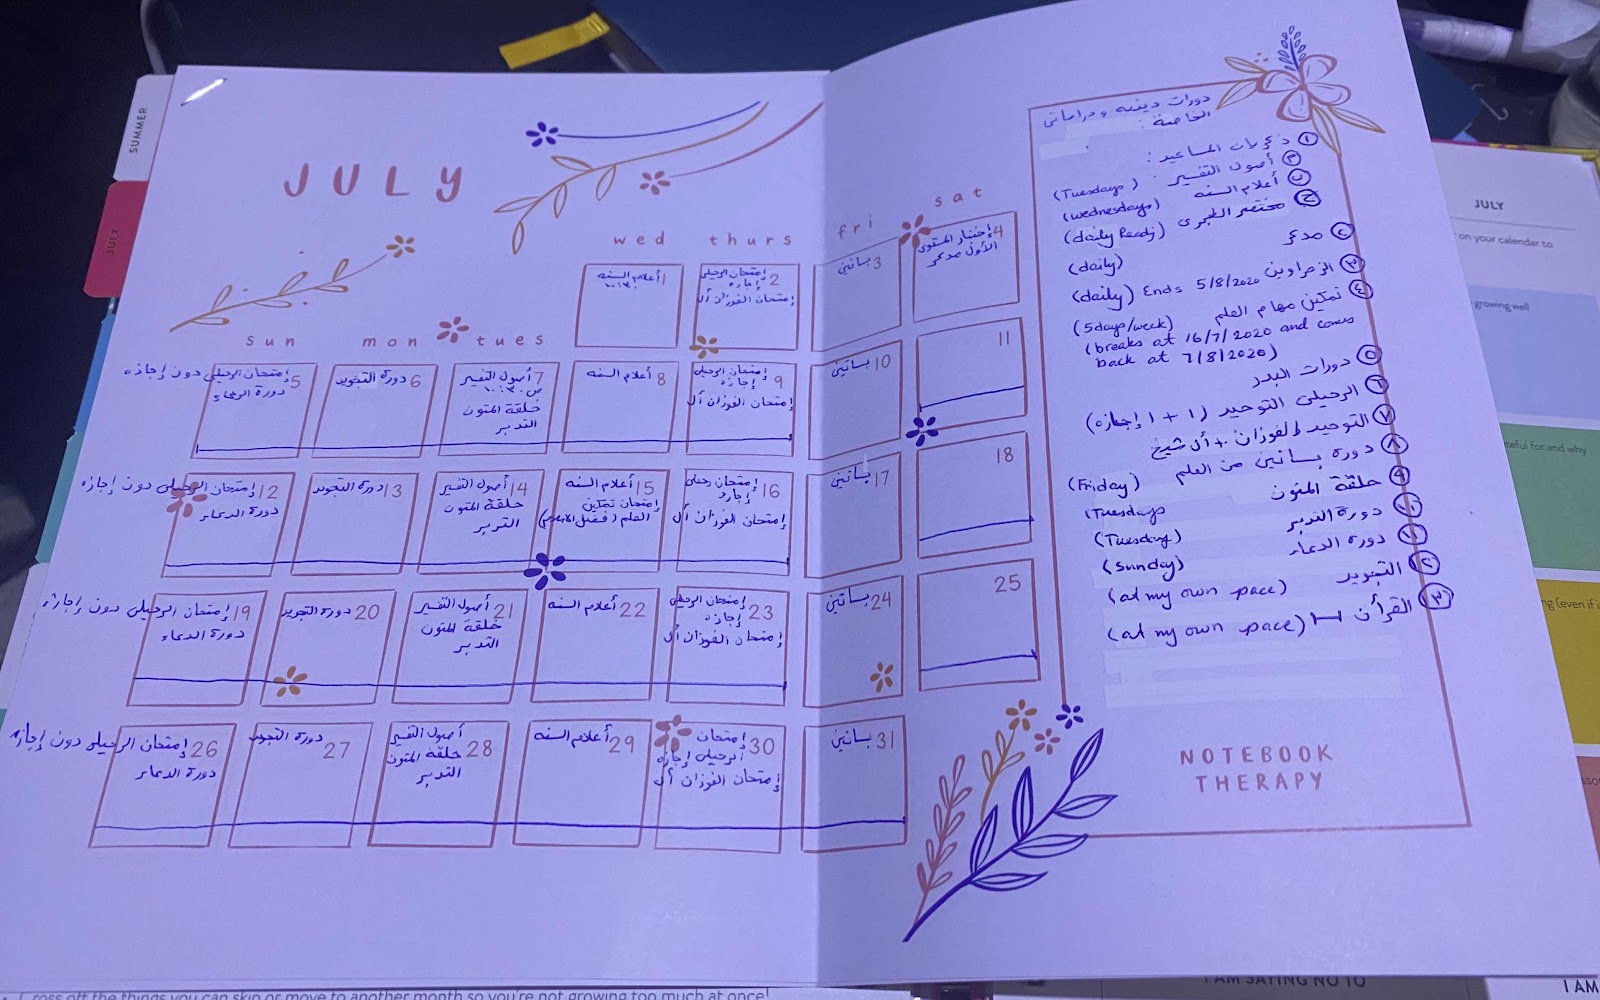 SUMMER
JULY
JULY
sun
mon
tues
wed
thurs
fri
sat
1 أعلام السنه
2 إمتحان الرحيلي
إجازه
إمتحان الفوزان أل
3 بساتين
4 إختبار المستوى
الأول مدكر
5 إمتحان الرحيلي دون إجازه
دورة الدعاء
6 دورة التجويد
7 أصول التفسير
حلقة المتون
التدبر
8 أعلام السنه
9 إمتحان الرحيلي
إجازه
إمتحان الفوزان أل
10 بساتين
11
12 إمتحان الرحيلي دون إجازه
دورة الدعاء
13 دورة التجويد
14 أصول التفسير
حلقة المتون
التدبر
15 أعلام السنه
إمتحان تمكين
العلم (فضل الإسلام)
16 إمتحان رحيلي
إجازه
إمتحان الفوزان أل
17 بساتين
18
19 إمتحان الرحيلي دون إجازه
دورة الدعاء
20 دورة التجويد
21 أصول التفسير
حلقة المتون
التدبر
22 أعلام السنه
23 إمتحان الرحيلي
إجازه
إمتحان الفوزان أل
24 بساتين
25
26 إمتحان الرحيلي دون إجازه
دورة الدعاء
27 دورة التجويد
28 أصول التفسير
حلقة المتون
التدبر
29 أعلام السنه
30 إمتحان
الرحيلي إجازه
إمتحان الفوزان أل
31 بساتين
دورات دينيه و دراساتي
الخاصة :
المساعيد :
أصول التفسير (Tuesdays)
أعلام السنه (wednesdays)
مختصر الطبري (daily Read)
مدكر (daily)
الزهراوين (daily) Ends 5/8/2020
تمكين مهام العلم (5days/week)
(breaks at 16/7/2020 and comes
back at 7/8/2020)
دورات البدر
الرحيلي التوحيد (١ + ١ إجازه)
التوحيد الفوزان + أل شيخ
دورة بساتين من العلم (Friday)
حلقة المتون (Tuesdays
دورة التدبر (Tuesday)
دورة الدعاء (Sunday)
التجويد (at my own pace)
القرأن (at my own pace)
NOTEBOOK
THERAPY
JULY
on your calendar to
growing well
eful for and why
ng (even if i
I AM SAYING NO TO
I AM
Cross off the things you can skip or move to another month so you're not growing too much at once!